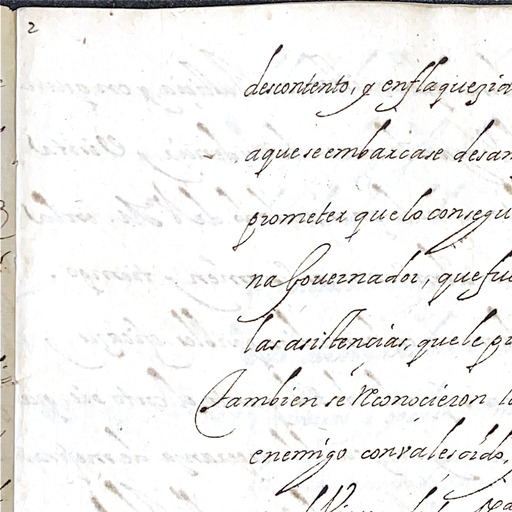 2
descontento, y enflaquezio
aqueseembarcase desam
prometer quelo consegu
na Gouernador, quefue
las asistencias, quele pr
Tambien se reconocieron l
enemigo convalesido,